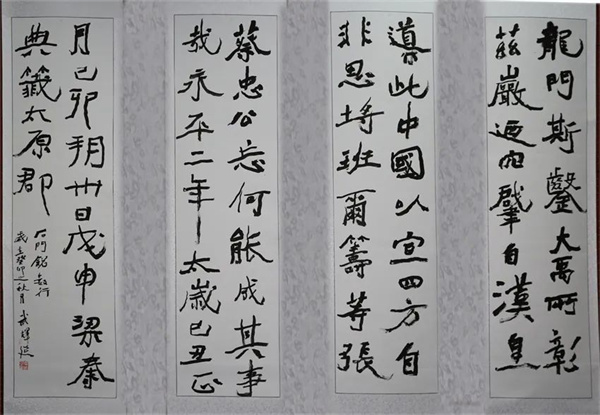 龍門斯鑿大禹所彰
茲巖迺穴肇自漢皇
導此中國以宣四方自
非思埒班爾籌等張
蔡忠公忘何能成其事
哉永平二年太歲己丑正
月己卯朔卅日戊申梁秦
典籤太原郡
石門銘數行
歲在癸卯之秋月